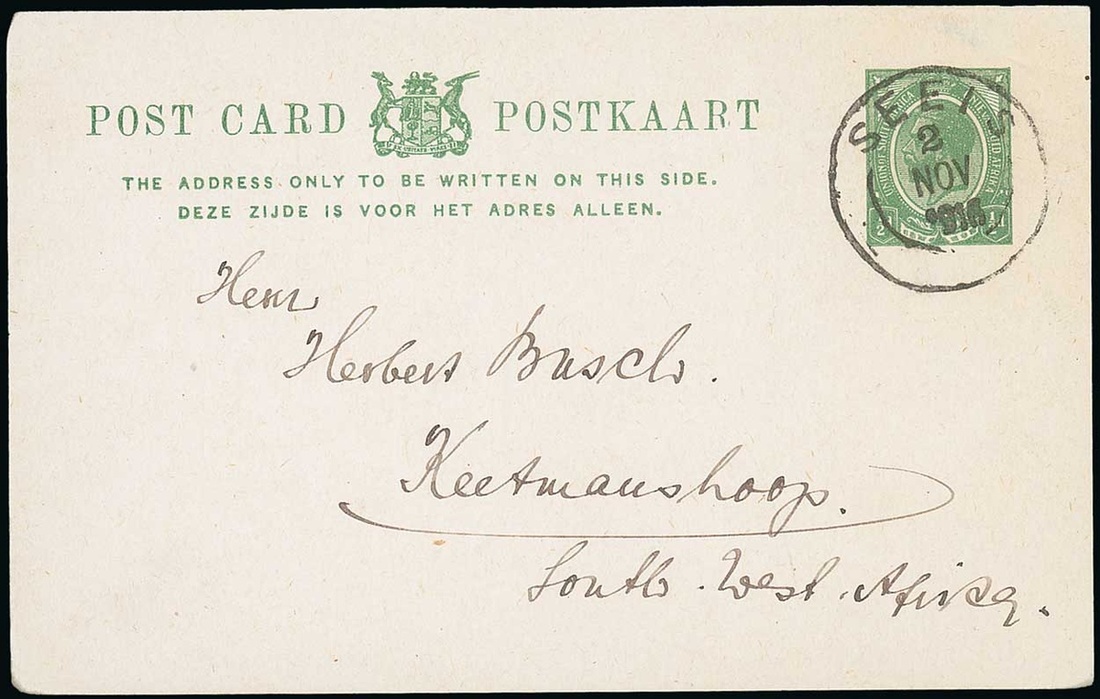 POST CARD POSTKAART
EX UNITATE VIRES
THE ADDRESS ONLY TO BE WRITTEN ON THIS SIDE.
DEZE ZIJDE IS VOOR HET ADRES ALLEEN.
SEEIS
2
NOV
½ ½
Herr
Herbert Busch.
Keetmanshoop.
South. West. Africa.